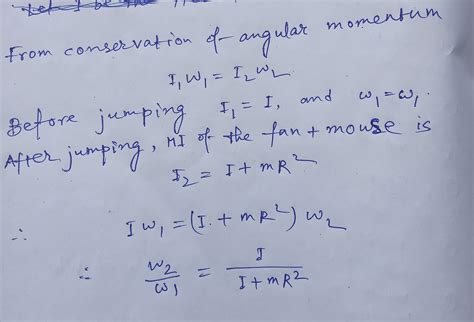 Let I be the
From conservation of angular momentum
I₁W₁ = I₂W₂
Before jumping I₁ = I, and ω₁ = ω₁.
After jumping, MI of the fan + mouse is
I₂ = I + mR²
∴ I W₁ = (I + mR²) W₂
∴ W₂/ω₁ = I/(I + mR²)